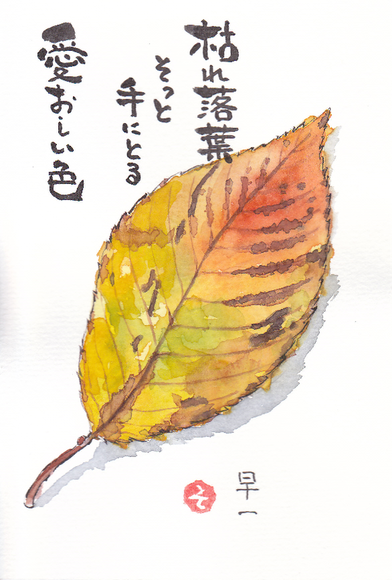 枯れ落葉
そっと
手にとる
愛おしい色
早一
そ